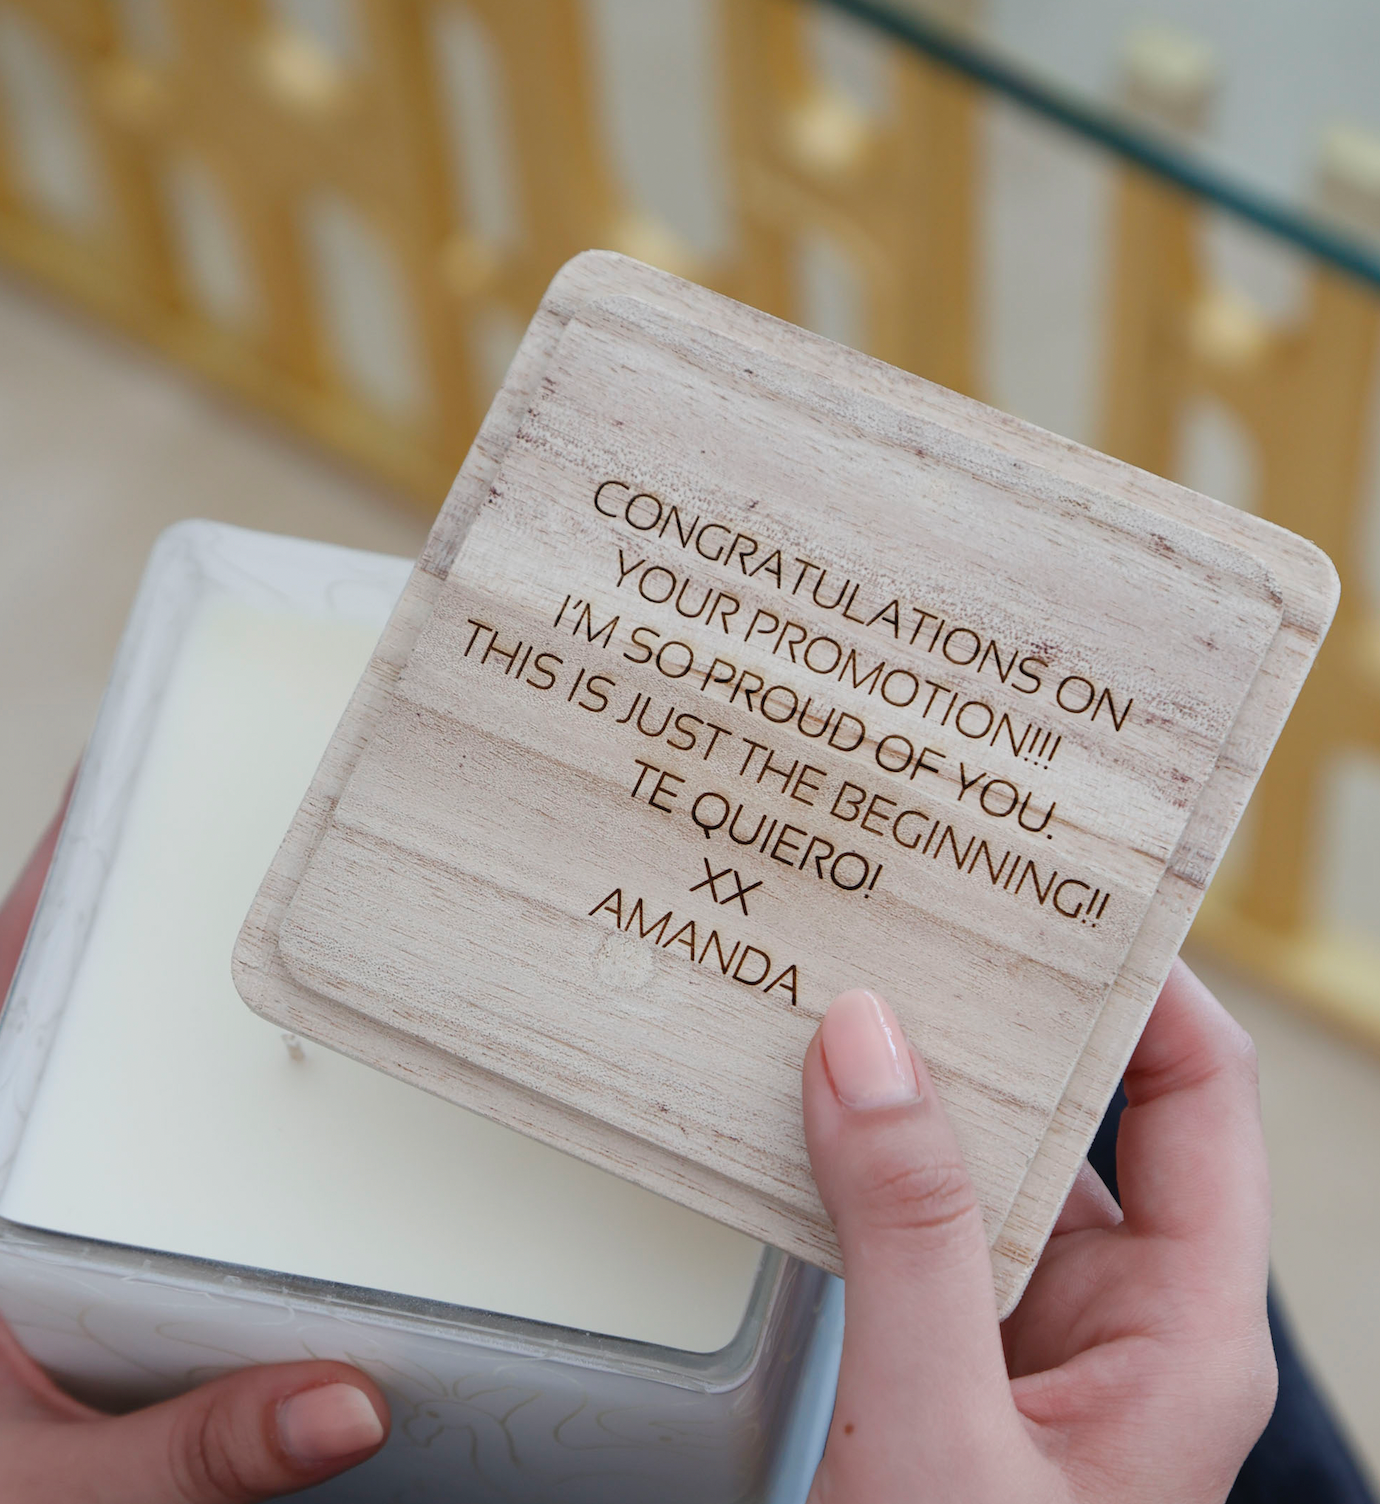 CONGRATULATIONS ON
YOUR PROMOTION!!!
I'M SO PROUD OF YOU.
THIS IS JUST THE BEGINNING!!
TE QUIERO!
XX
AMANDA